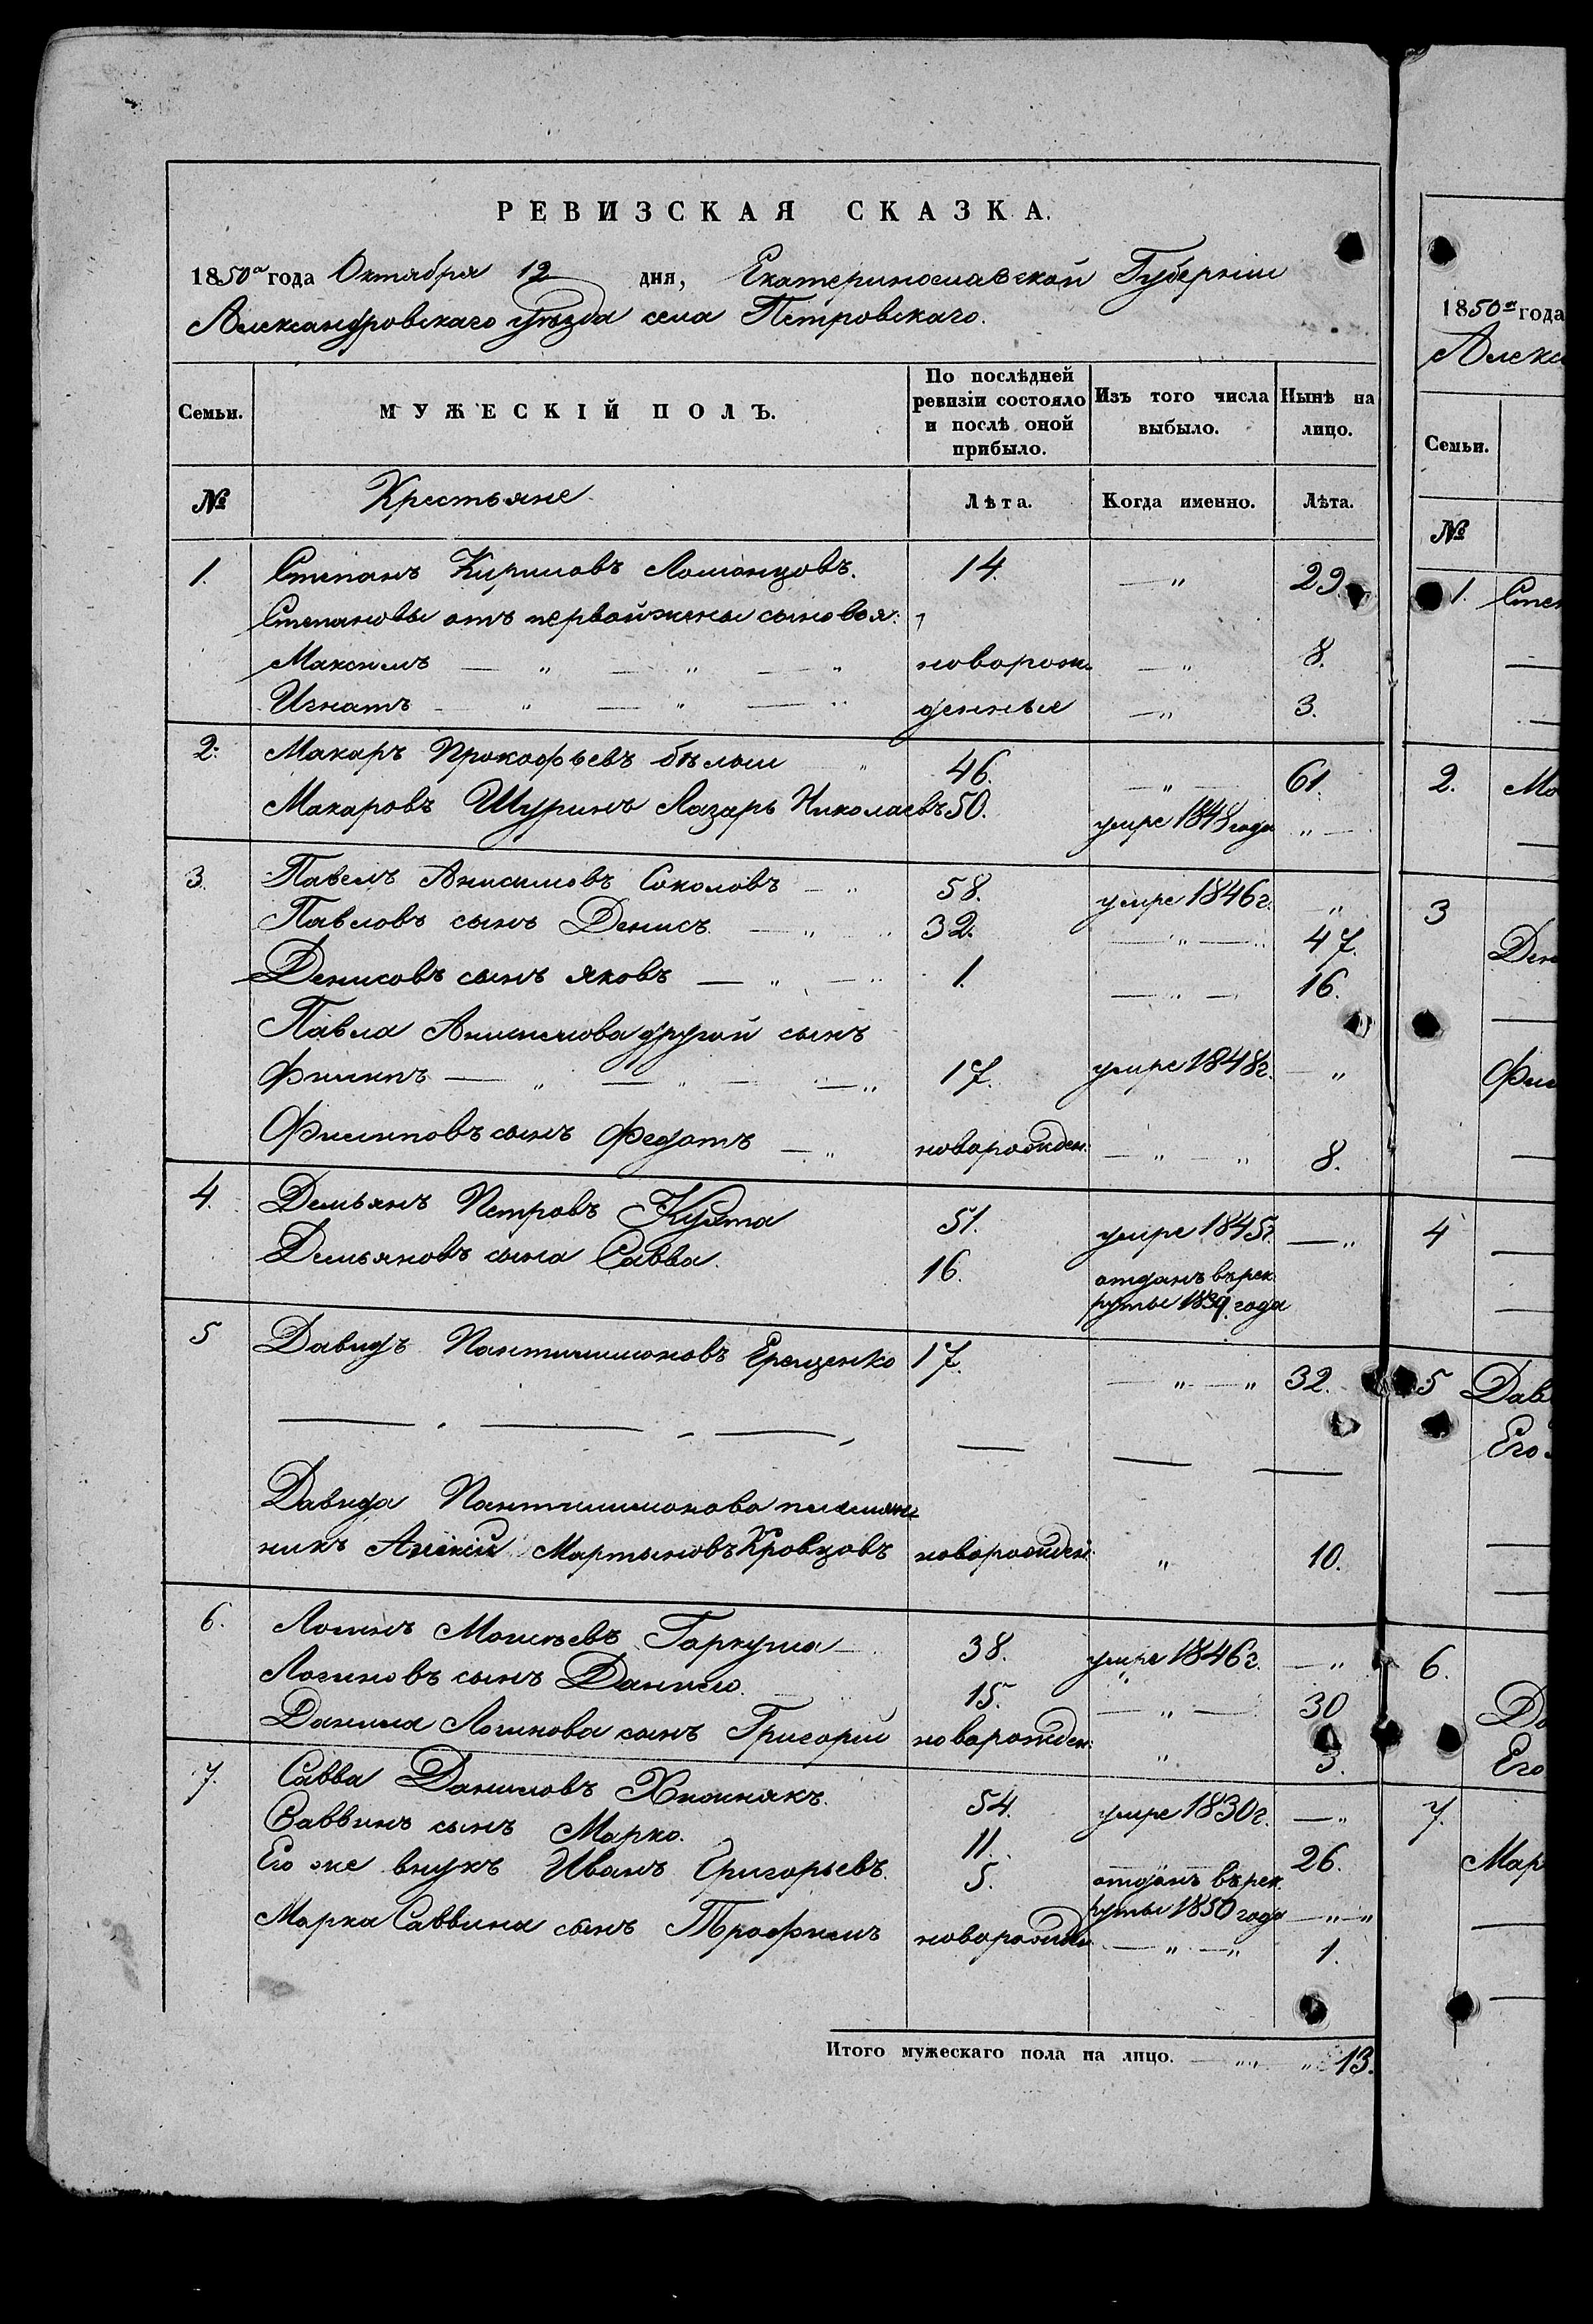 РЕВИЗСКАЯ СКАЗКА.
1850го года Октября 12 дня, Екатеринославской Губерніи
Александровскаго уѣзда села Петровскаго.
Семьи. МУЖЕСКІЙ ПОЛЪ. По послѣдней ревизіи состояло и послѣ оной прибыло. Изъ того числа выбыло. Нынѣ на лицо.
№ Крестьяне Лѣта. Когда именно. Лѣта.
1. Степанъ Кириловъ 14. — " 29
Степановы отъ первой жены сыновья:
Максимъ — " — " — " новорож- — " 8.
Игнатъ — " — " — " денные — " 3.
2. Макаръ Прокофьевъ бѣлый " 46. — " 61.
Макаровъ Шуринъ Лазарь Николаевъ 50. умре 1848 года " —
3. Павелъ Анисимовъ Соколовъ — " 58. умре 1846 г. "
Павловъ сынъ Денисъ — " " 32. — " — " 47.
Денисовъ сынъ Яковъ — " — " 1. — " — 16.
Павла Анисимова другой сынъ
Филипъ — " — " — " — " 17. умре 1848 г. — "
Филиповъ сынъ Федотъ — " новорожден: — " — " 8.
4. Демьянъ Петровъ 51. умре 1845 г. — "
Демьяновъ сына Савва. 16. отданъ въ рек-
руты 1839. года
5 Давидъ Пантилимоновъ Ерещенко 17. — " — " 32.
Давида Пантилимонова племян-
никъ Мартыновъ Кровцовъ новорожден: " 10.
6. Логинъ Моисѣевъ Гаркуша — 38. умре 1846 г. — "
Логиновъ сынъ Данило. 15. — " — 30
Данила Логинова сынъ Григорій новорожден: " 3.
7. Савва Даниловъ 54. умре 1830 г. — "
Саввинъ сынъ Марко. 11. " 26.
Его же внукъ Иванъ Григорьевъ. 5. отданъ въ рек-
руты 1850 года — " — "
Марка Саввина сынъ Трофимъ новорожден — " — " 1.
Итого мужескаго пола на лицо. — "" " 13.
1850го года
Алекса
Семьи.
№
1. Степ
2. Ма
3
Ден
Фил
4
5 Дав
Его
6.
Да
Его
7.
Мар